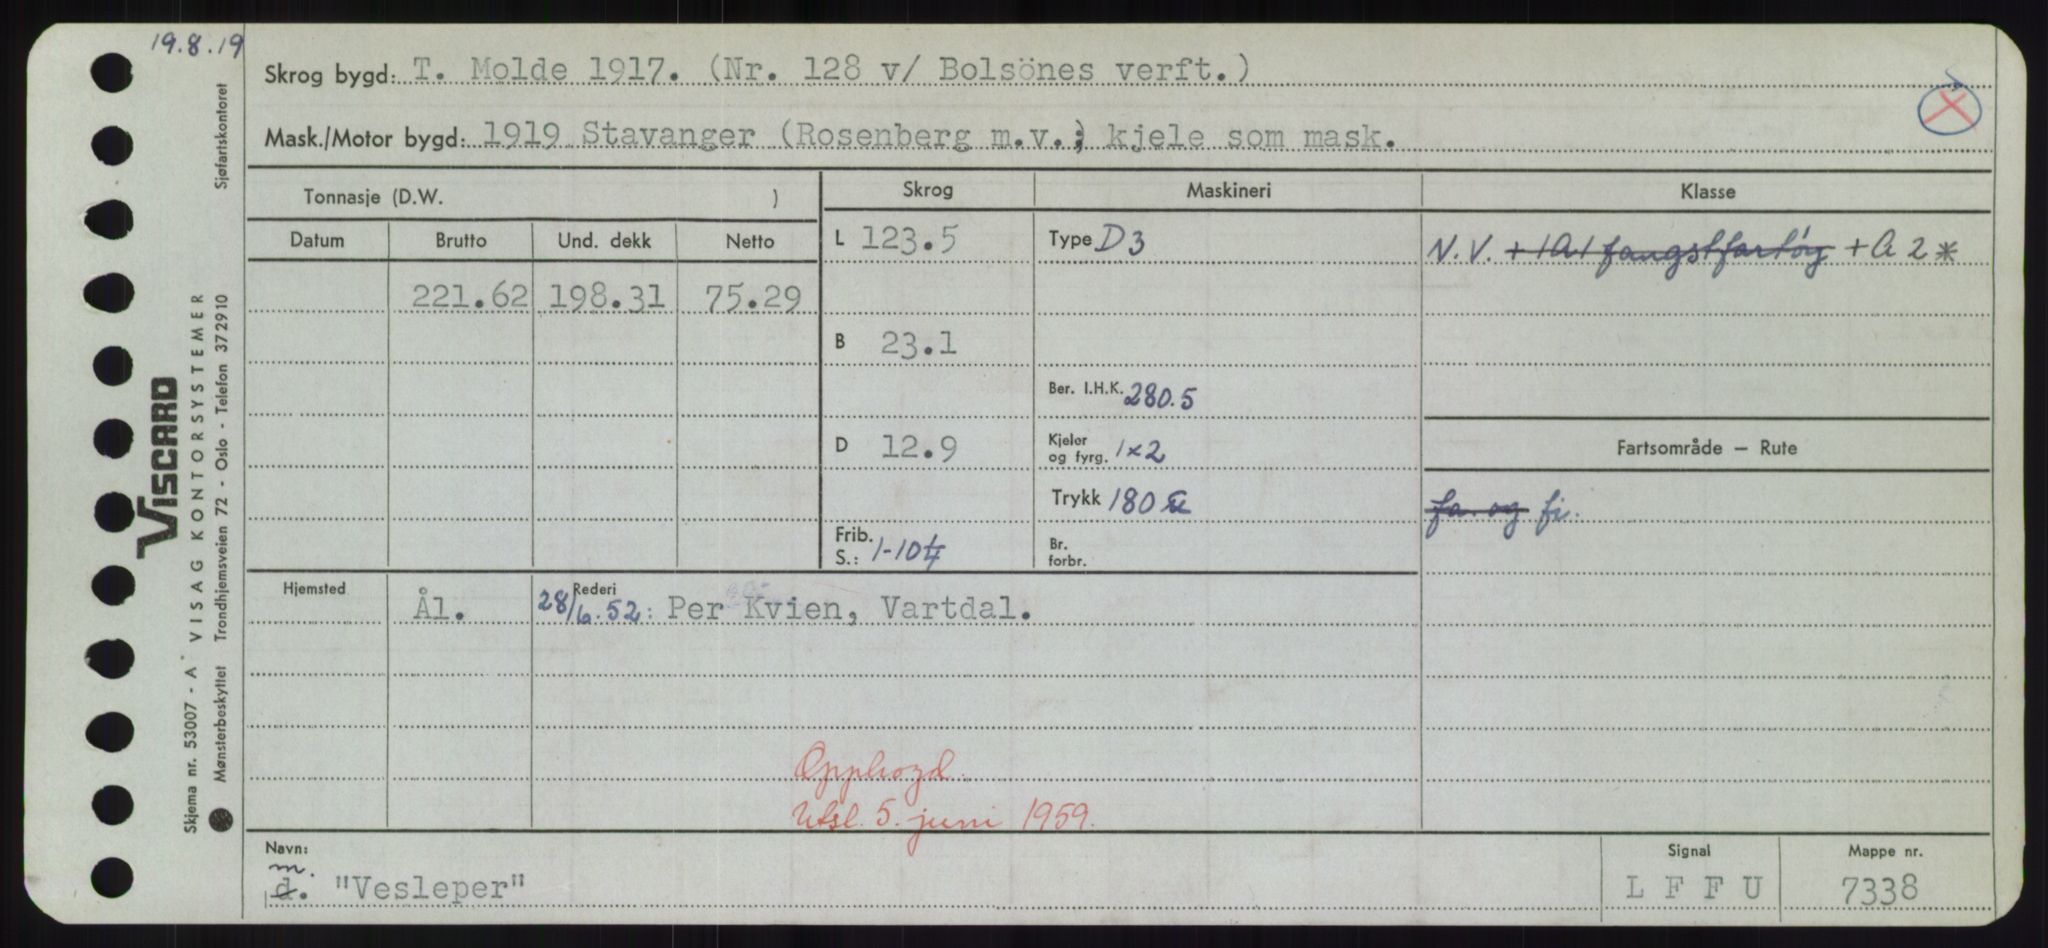 19.8.19
Skrog bygd: T. Molde 1917. (Nr. 128 v/ Bolsönes verft.)
Mask./Motor bygd: 1919 Stavanger (Rosenberg m.v.; kjele som mask.
Tonnasje (D.W. )
Skrog
Maskineri
Klasse
Datum Brutto Und. dekk Netto
221.62 198.31 75.29
L 123.5
B 23.1
D 12.9
Frib.
S.: 1-10
Type D3
Ber. I.H.K. 280.5
Kjeler
og fyrg. 1x2
Trykk 180
Br.
forbr.
N.V. +1A1 fangstfartöy +A2*
Fartsområde — Rute
fa. og fi.
Hjemsted Ål.
Rederi
28/6.52: Per Kvien, Vartdal.
Opphogd.
Utsl. 5. juni 1959.
Navn:
m.
d. "Vesleper"
Signal
L F F U
Mappe nr.
7338
VISCARD
Skjema nr. 53007 - A VISAG KONTORSYSTEMER
Mønsterbeskyttet Trondhjemsveien 72 - Oslo - Telefon 372910 Sjøfartskontoret